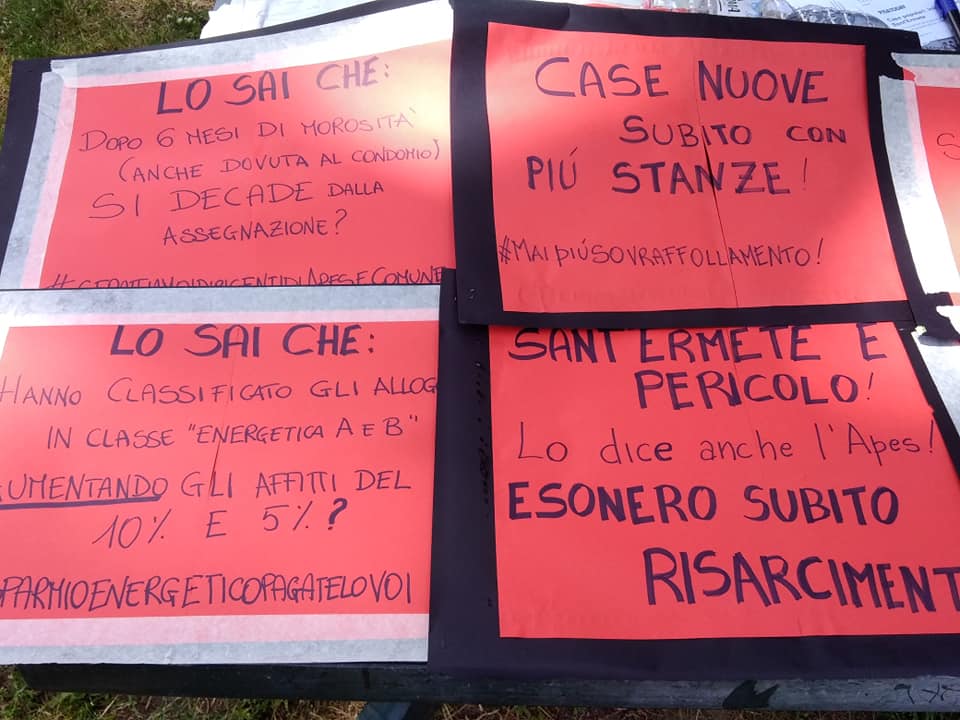 LO SAI CHE:
DOPO 6 MESI DI MOROSITA'
(ANCHE DOVUTA AL CONDOMIO)
SI DECADE DALLA
ASSEGNAZIONE?
CASE NUOVE
SUBITO CON
PIÚ STANZE!
#MAIPIÚSOVRAFFOLLAMENTO!
LO SAI CHE:
HANNO CLASSIFICATO GLI ALLOG
IN CLASSE "ENERGETICA A E B"
AUMENTANDO GLI AFFITTI DEL
10% E 5%?
SPARMIOENERGETICOPAGATELOVOI
SANT'ERMETE E
PERICOLO!
Lo dice anche l'Apes!
ESONERO SUBITO
RISARCIMENT